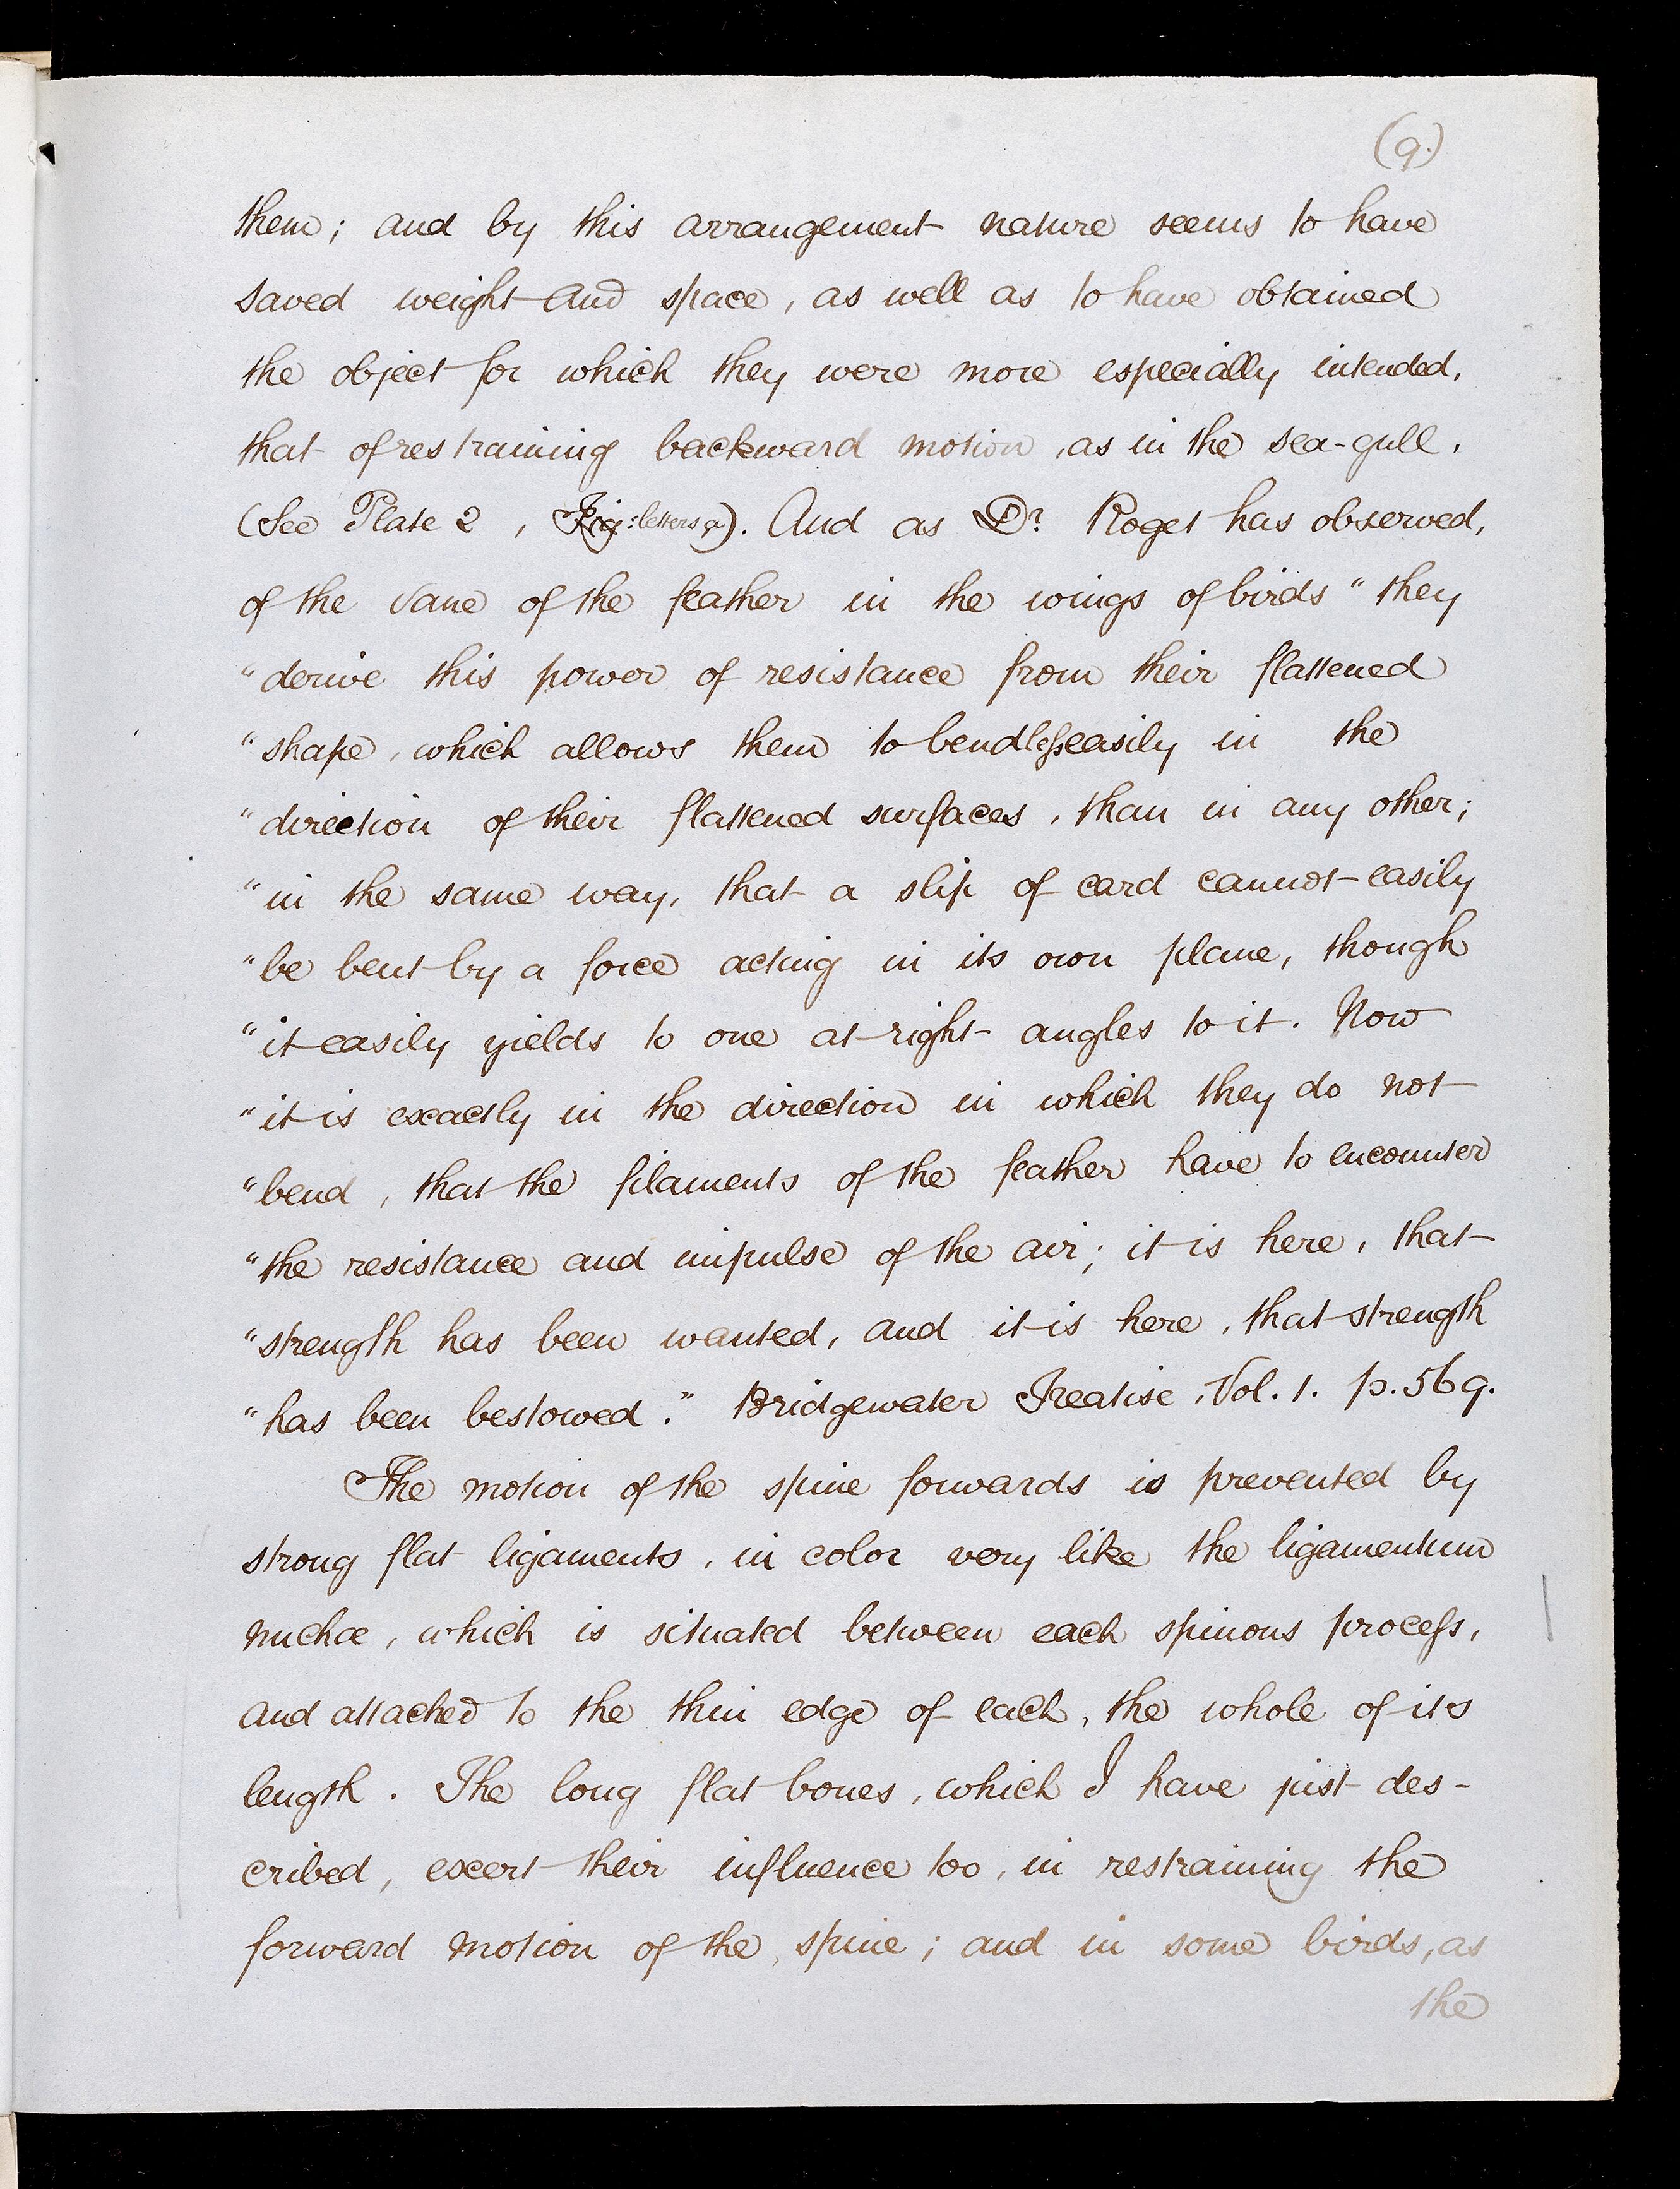 (9.)
them; and by this arrangement nature seems to have
saved weight and space, as well as to have obtained
the object for which they were more especially intended,
that of restraining backward motion, as in the sea-gull.
(See Plate 2, Fig: letters a). And as Dr. Roget has observed,
of the vane of the feather in the wings of birds "they
"derive this power of resistance from their flattened
"shape, which allows them to bend less easily in the
"direction of their flattened surfaces, than in any other;
"in the same way, that a slip of card cannot easily
"be bent by a force acting in its own plane, though
"it easily yields to one at right angles to it. Now
"it is exactly in the direction in which they do not
"bend, that the filaments of the feather have to encounter
"the resistance and impulse of the air; it is here, that
"strength has been wanted, and it is here, that strength
"has been bestowed." Bridgewater Treatise, Vol. 1. p. 569.
The motion of the spine forwards is prevented by
strong flat ligaments, in color very like the ligamentum
nuchæ, which is situated between each spinous process,
and attached to the thin edge of each, the whole of its
length. The long flat bones, which I have just des-
cribed, exert their influence too, in restraining the
forward motion of the spine; and in some birds, as
the